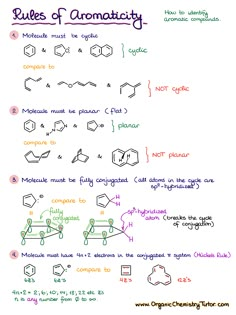 Rules of Aromaticity
How to identify
aromatic compounds
1 Molecule must be cyclic
& &
cyclic
compare to
& & &
NOT cyclic
2 Molecule must be planar (flat)
& &
planar
compare to
& &
NOT planar
3 Molecule must be fully conjugated (all atoms in the cycle are
sp²-hybridized)
compare to
fully
conjugated
sp³-hybridized
atom (breaks the cycle
of conjugation)
4 Molecule must have 4n+2 electrons in the conjugated π system (Hückel's Rule)
&
compare to
&
6ē's
6ē's
4ē's
12ē's
4n+2 = 2, 6, 10, 14, 18, 22 etc ē's
n is any number from 0 to ∞
www.OrganicChemistryTutor.com